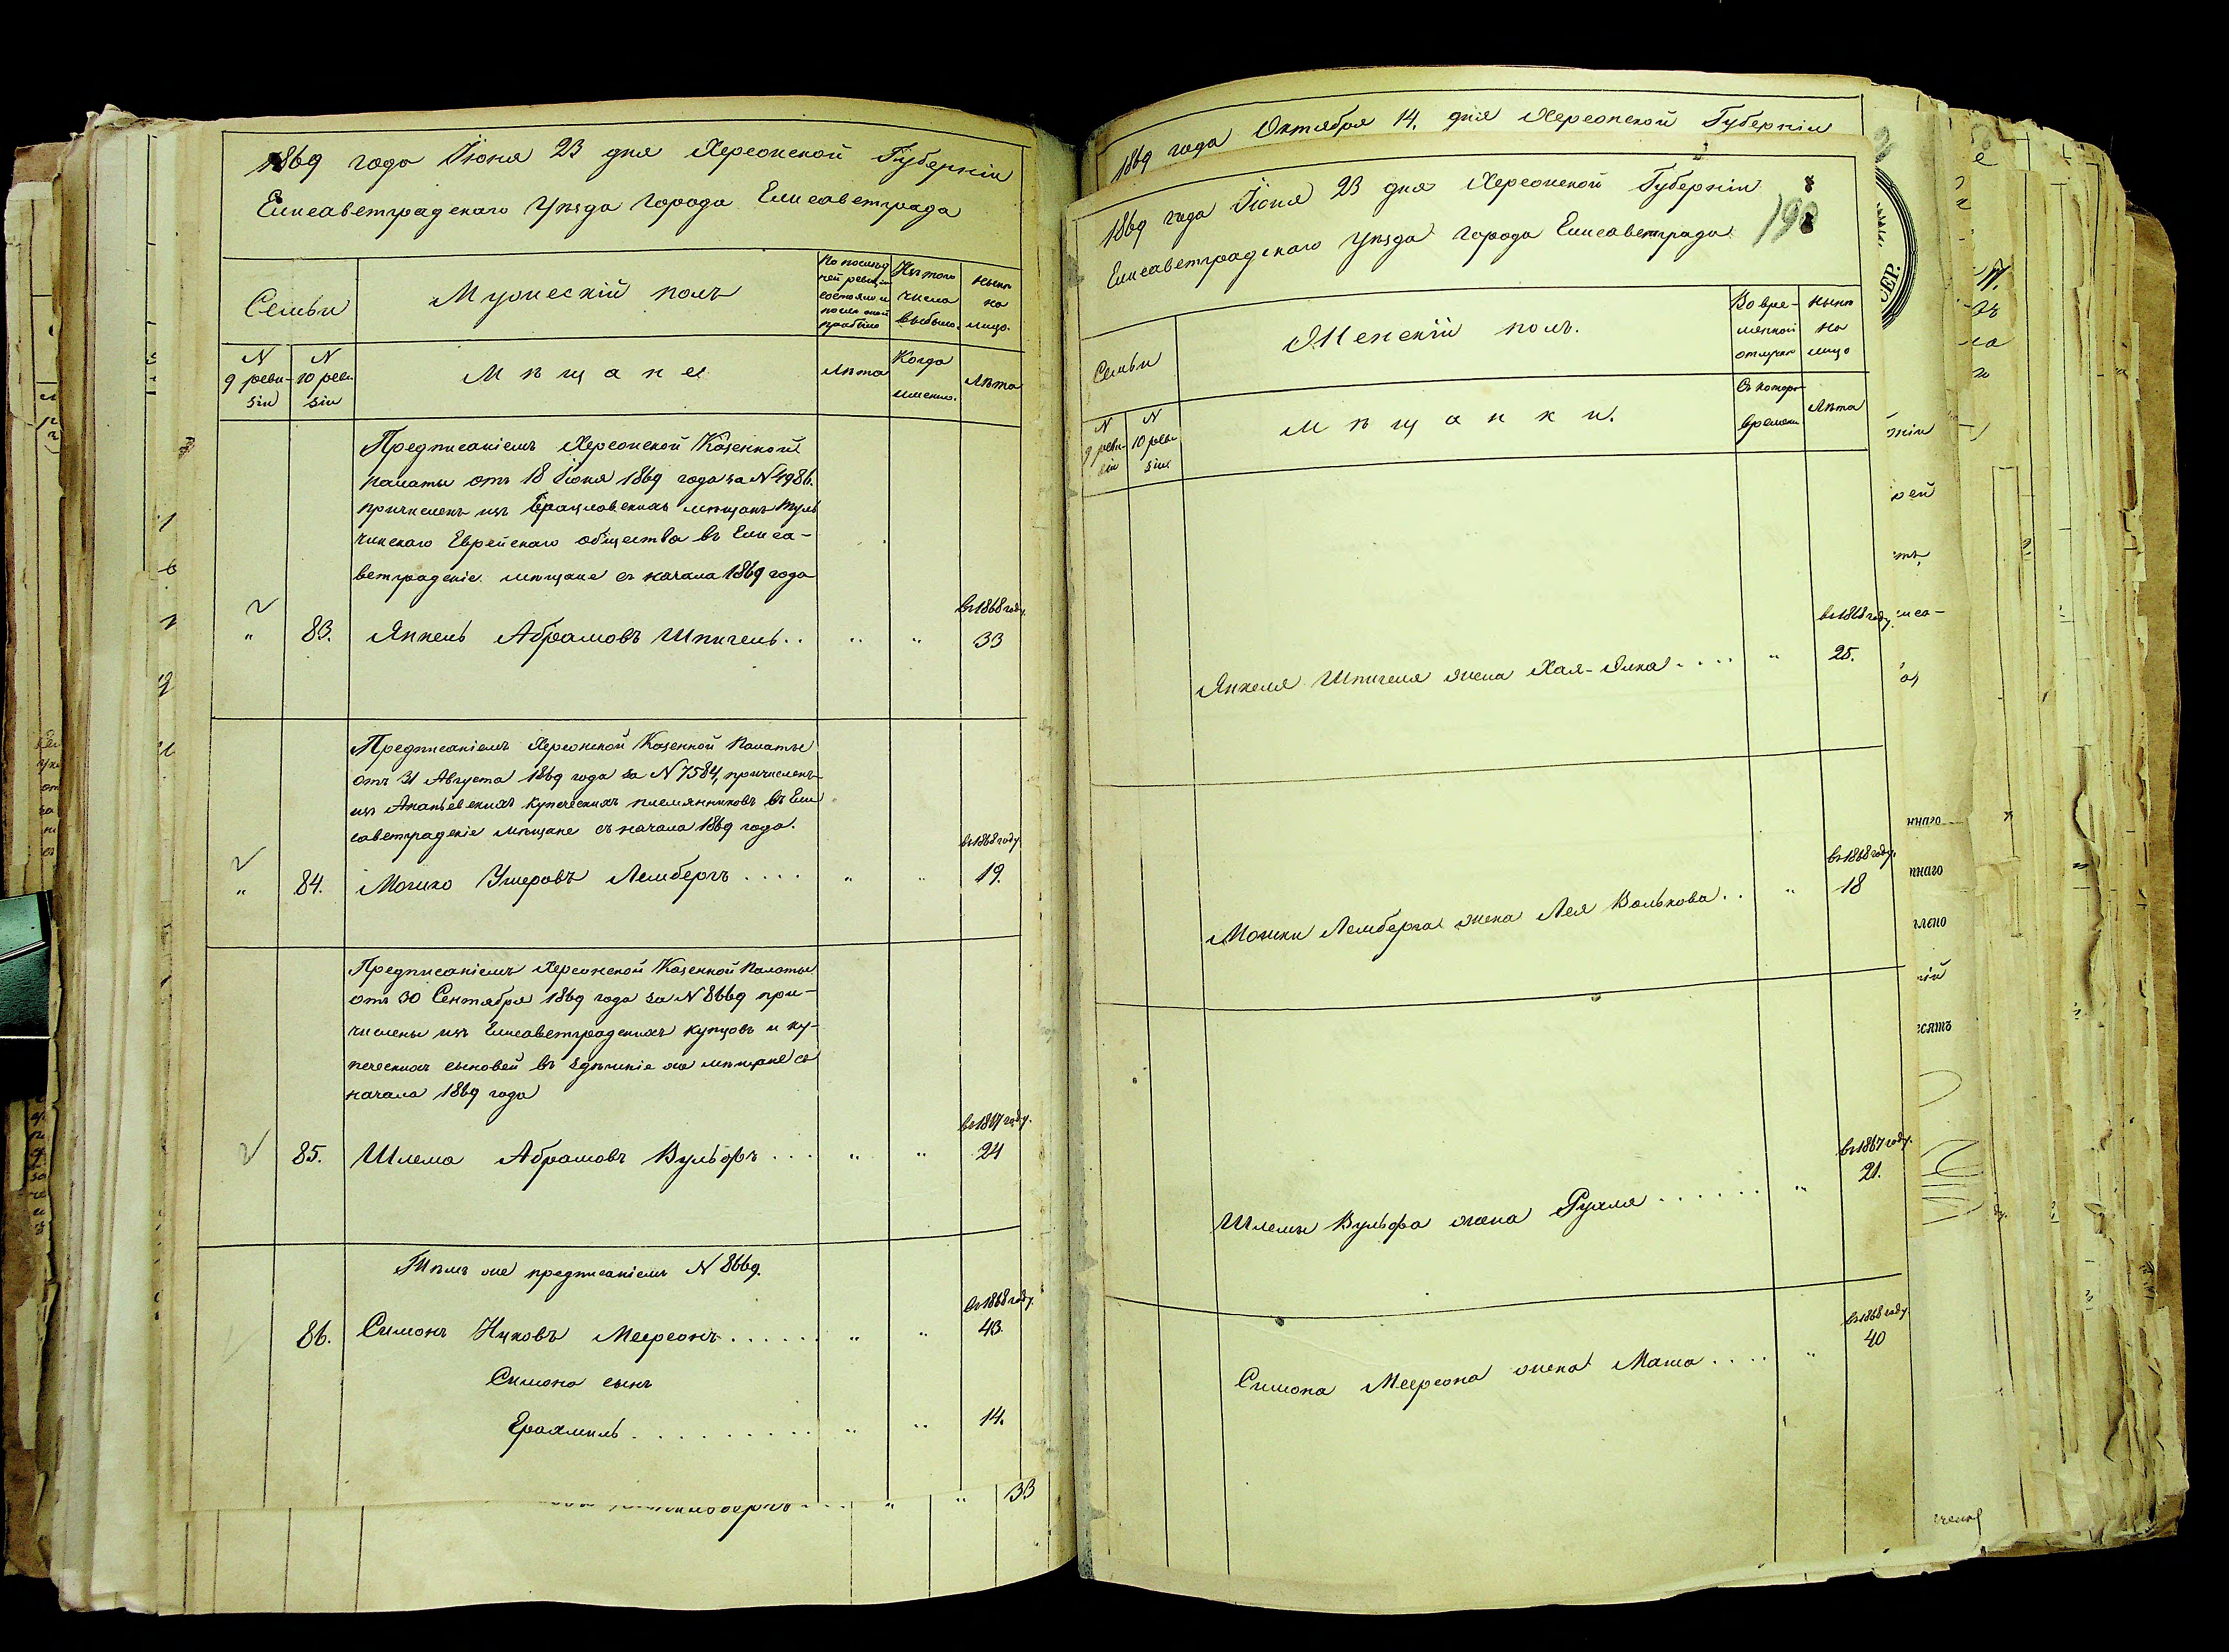 1869 года Іюня 23 дня Херсонской Губерніи
Елисаветградскаго Уѣзда Города Елисаветграда
Семьи
Мужескій полъ
По послѣд
ней ревизіи
состояло и
послѣ оной
прибыло
Изъ того
числа
выбыло.
Нынѣ
на
лицо.
N
9 реви-
зіи
N
10 реви
зіи
Мѣщане
Лѣта
Когда
именно.
Лѣта
Предписаніемъ Херсонской Казенной
Палаты отъ 18 Іюня 1869 года за N 4986.
причисленъ изъ Брацловскихъ мѣщанъ Туль
чинскаго Еврейскаго общества въ Елиса-
ветградскіе мѣщане съ начала 1869 года
въ 1868 году.
" 83. Янкель Абрамовъ Шпигель . . " " 33
Предписаніемъ Херсонской Казенной Палаты
отъ 31 Августа 1869 года за N 7584, причисленъ
изъ Ананьевскихъ купеческихъ племянниковъ въ Ели
саветградскіе мѣщане съ начала 1869 года.
въ 1868 году
" 84. Мошко Ушеровъ Лембергъ . . . . " " 19.
Предписаніемъ Херсонской Казенной Палаты
отъ 30 Сентября 1869 года за N 8669 при-
числены изъ Елисаветградскихъ купцовъ и ку-
печескихъ сыновей въ здѣшніе же мѣщане съ
начала 1869 года
въ 1867 году.
85. Шлема Абрамовъ Вульфъ . . . " " 24
Тѣмъ же предписаніемъ N 8669.
въ 1868 году.
86. Симонъ Ицковъ Меерсонъ . . . . . . " " 43.
Симона сынъ
Ерахмиль . . . . . . . . . . " " 14.
" " 33
1869 года Октября 14. дня Херсонской Губерніи
1869 года Іюня 23 дня Херсонской Губерніи
Елисаветградскаго Уѣзда Города Елисаветграда
Семьи
Женскій полъ.
Во вре-
менной
отлучкѣ
Нынѣ
на
лицо
N
9 реви-
зіи
N
10 реви
зіи
Мѣщанки.
Съ котораго
времени
Лѣта
въ 1868 году.
Янкеля Шпигеля жена Хая-Элка . . . . " 25.
въ 1868 году.
Мошки Лемберга жена Лея Волькова . . " 18
въ 1867 году.
Шлемы Вульфа жена Рухля . . . . . . " 21.
въ 1868 году.
Симона Меерсона жена Маша . . . . " 40
СЕР.
ннаго
ннаго